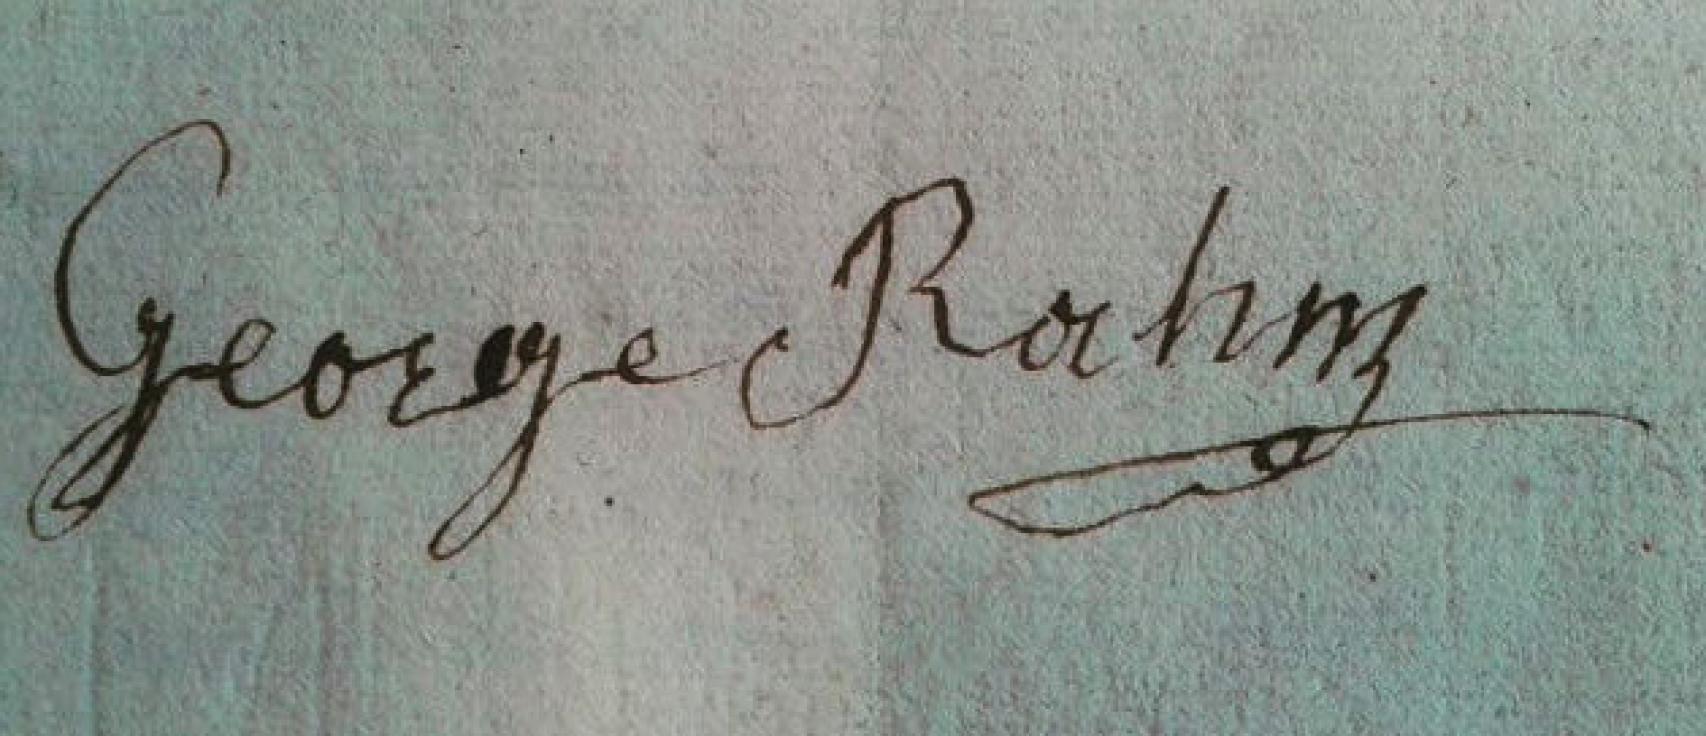 George Rahm